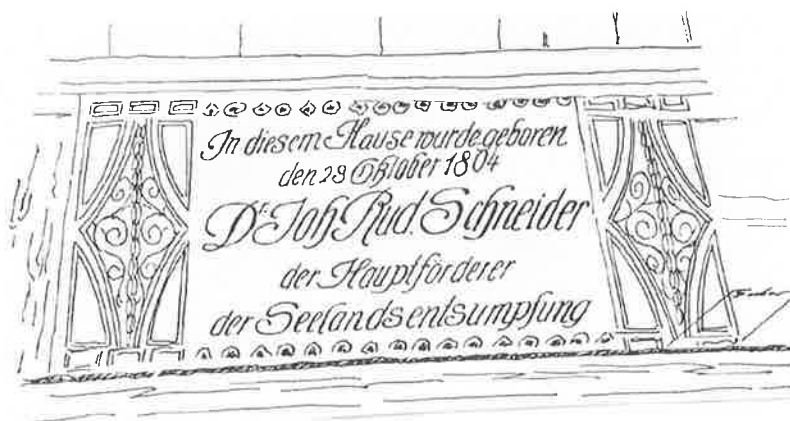 In diesem Hause wurde geboren
den 23 Oktober 1804
Dr. Joh. Rud. Schneider
der Hauptförderer
der Seelandsentsumpfung